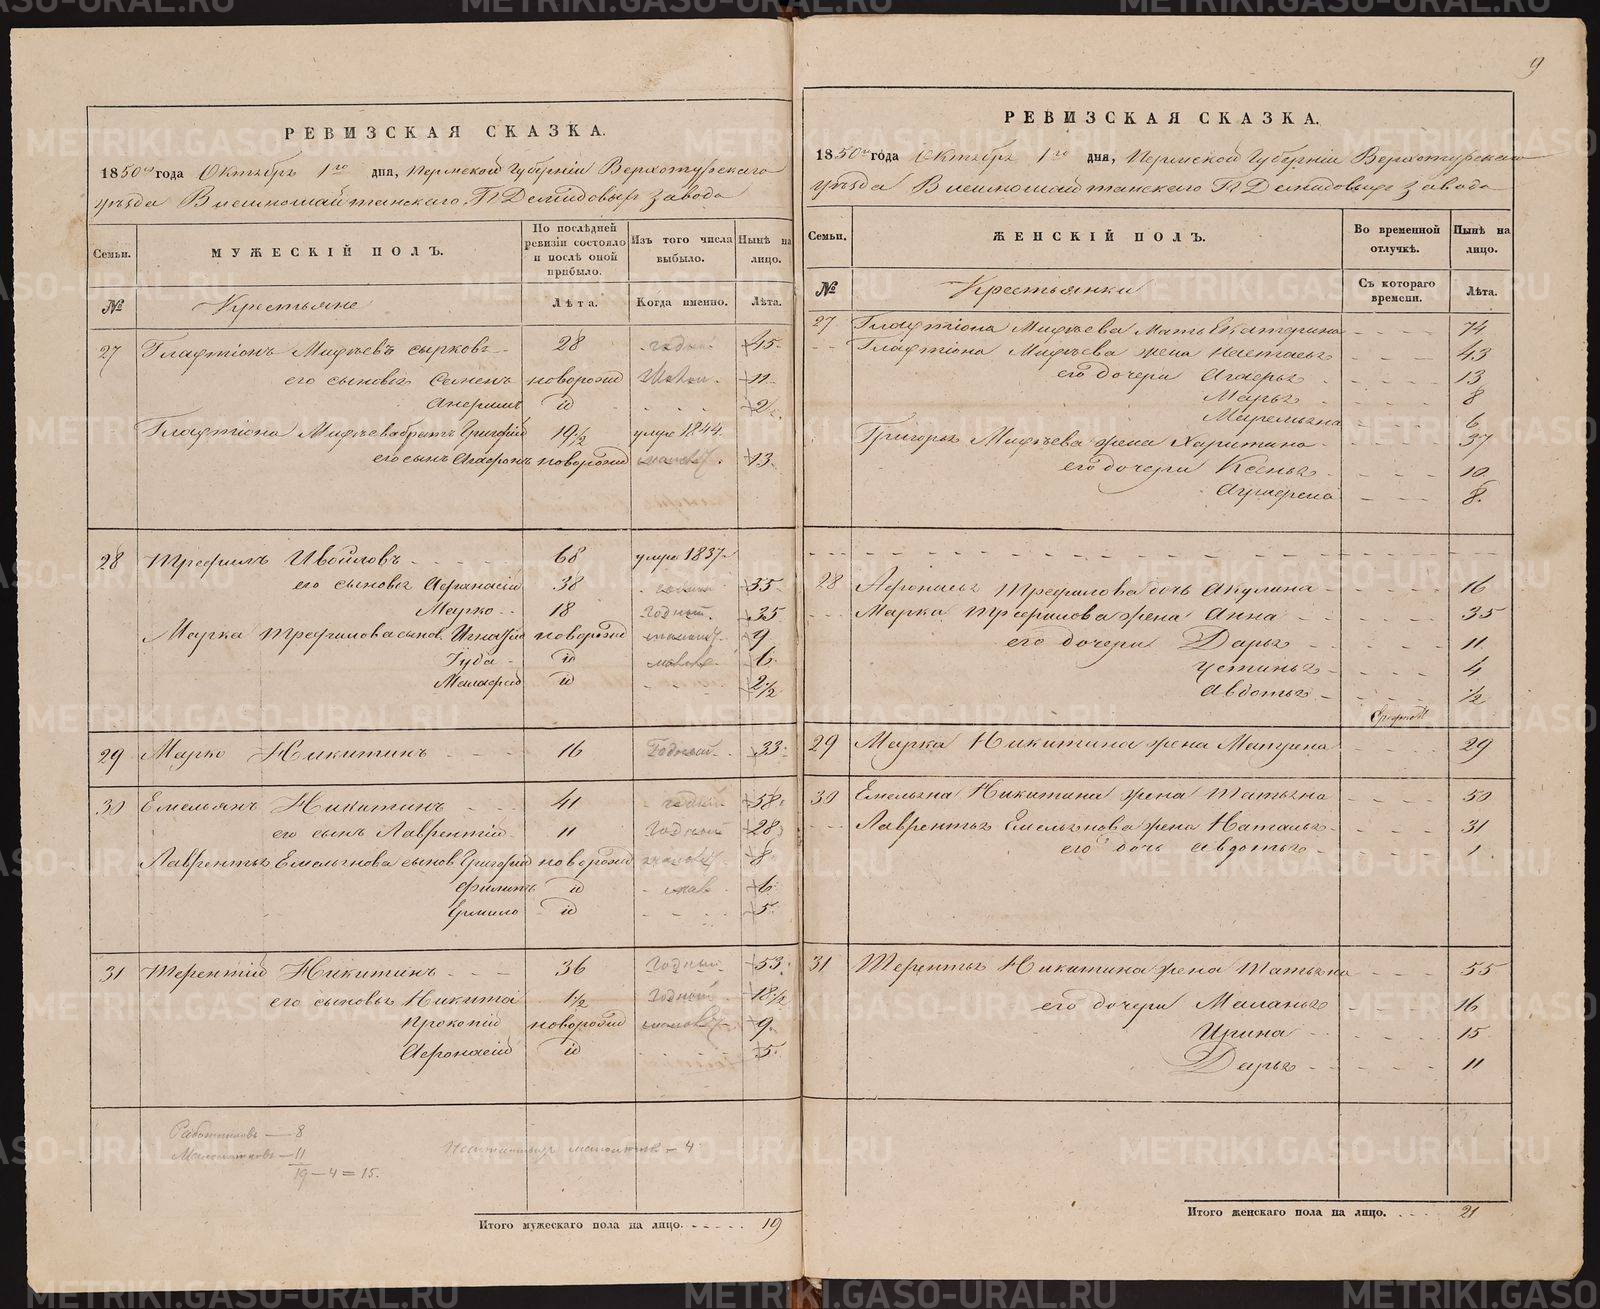 9
РЕВИЗСКАЯ СКАЗКА.
1850го года Октября 1го дня, Пермской Губерніи Верхотурскаго
уѣзда Висимошайтанскаго Гг. Демидовыхъ завода
Семьи.
МУЖЕСКІЙ ПОЛЪ.
По послѣдней ревизіи состояло и послѣ оной прибыло.
Изъ того числа выбыло.
Нынѣ на лицо.
№ Крестьяне Лѣта. Когда именно. Лѣта.
27 Мифѣевъ 28 годный 45
его сыновья Семенъ новорожд 11
id 2
Мифѣева братъ Григорій 19½ умре 1844
его сынъ Агафонъ новорожд 13
28 Трефилъ Ивойловъ 68 умре 1837
его сыновья Афанасій 38 55
Марко 18 годный 35
Марка Трефилова сынов. Игнатій новорожд 9
Іуда id 6
id 2½
29 Марко Никитинъ 16 Годный 33
30 Емельянъ Никитинъ 41 годный 58
его сынъ Лаврентій 11 Годный 28
Лаврентья Емельянова сынов. Григорій новорожд 8
Филипъ id 6
Ермило id 5
31 Терентій Никитинъ 36 Годный 53
его сыновья Никита 1½ Годный 18½
Прокопій новорожд 9
Афонасій id 5
Работниковъ — 8
Малолѣтковъ — 11
19 — 4 = 15.
— 4
Итого мужескаго пола на лицо. 19
РЕВИЗСКАЯ СКАЗКА.
1850го года Октября 1го дня, Пермской Губерніи Верхотурскаго
уѣзда Висимошайтанскаго Гг. Демидовыхъ завода
Семьи.
ЖЕНСКІЙ ПОЛЪ.
Во временной отлучкѣ.
Нынѣ на лицо.
№ Крестьянки Съ котораго времени. Лѣта.
27 Мифѣева мать Екатерина 74
Мифѣева жена Настасья 43
его дочери Агафья 13
Марья 8
6
Григорья Мифѣева жена Харитина 37
его дочери Ксенья 10
8
28 Афонасья Трефилова дочь Акулина 16
Марка Трефилова жена Анна 35
его дочери Дарья 11
Устинья 4
Авдотья ½
29 Марка Никитина жена 29
30 Емельяна Никитина жена Татьяна 50
Лаврентья Емельянова жена Наталья 31
его дочь Авдотья 1
31 Терентья Никитина жена Татьяна 55
его дочери Маланья 16
Ирина 15
Дарья 11
Итого женскаго пола на лицо. 21
METRIKI.GASO-URAL.RU